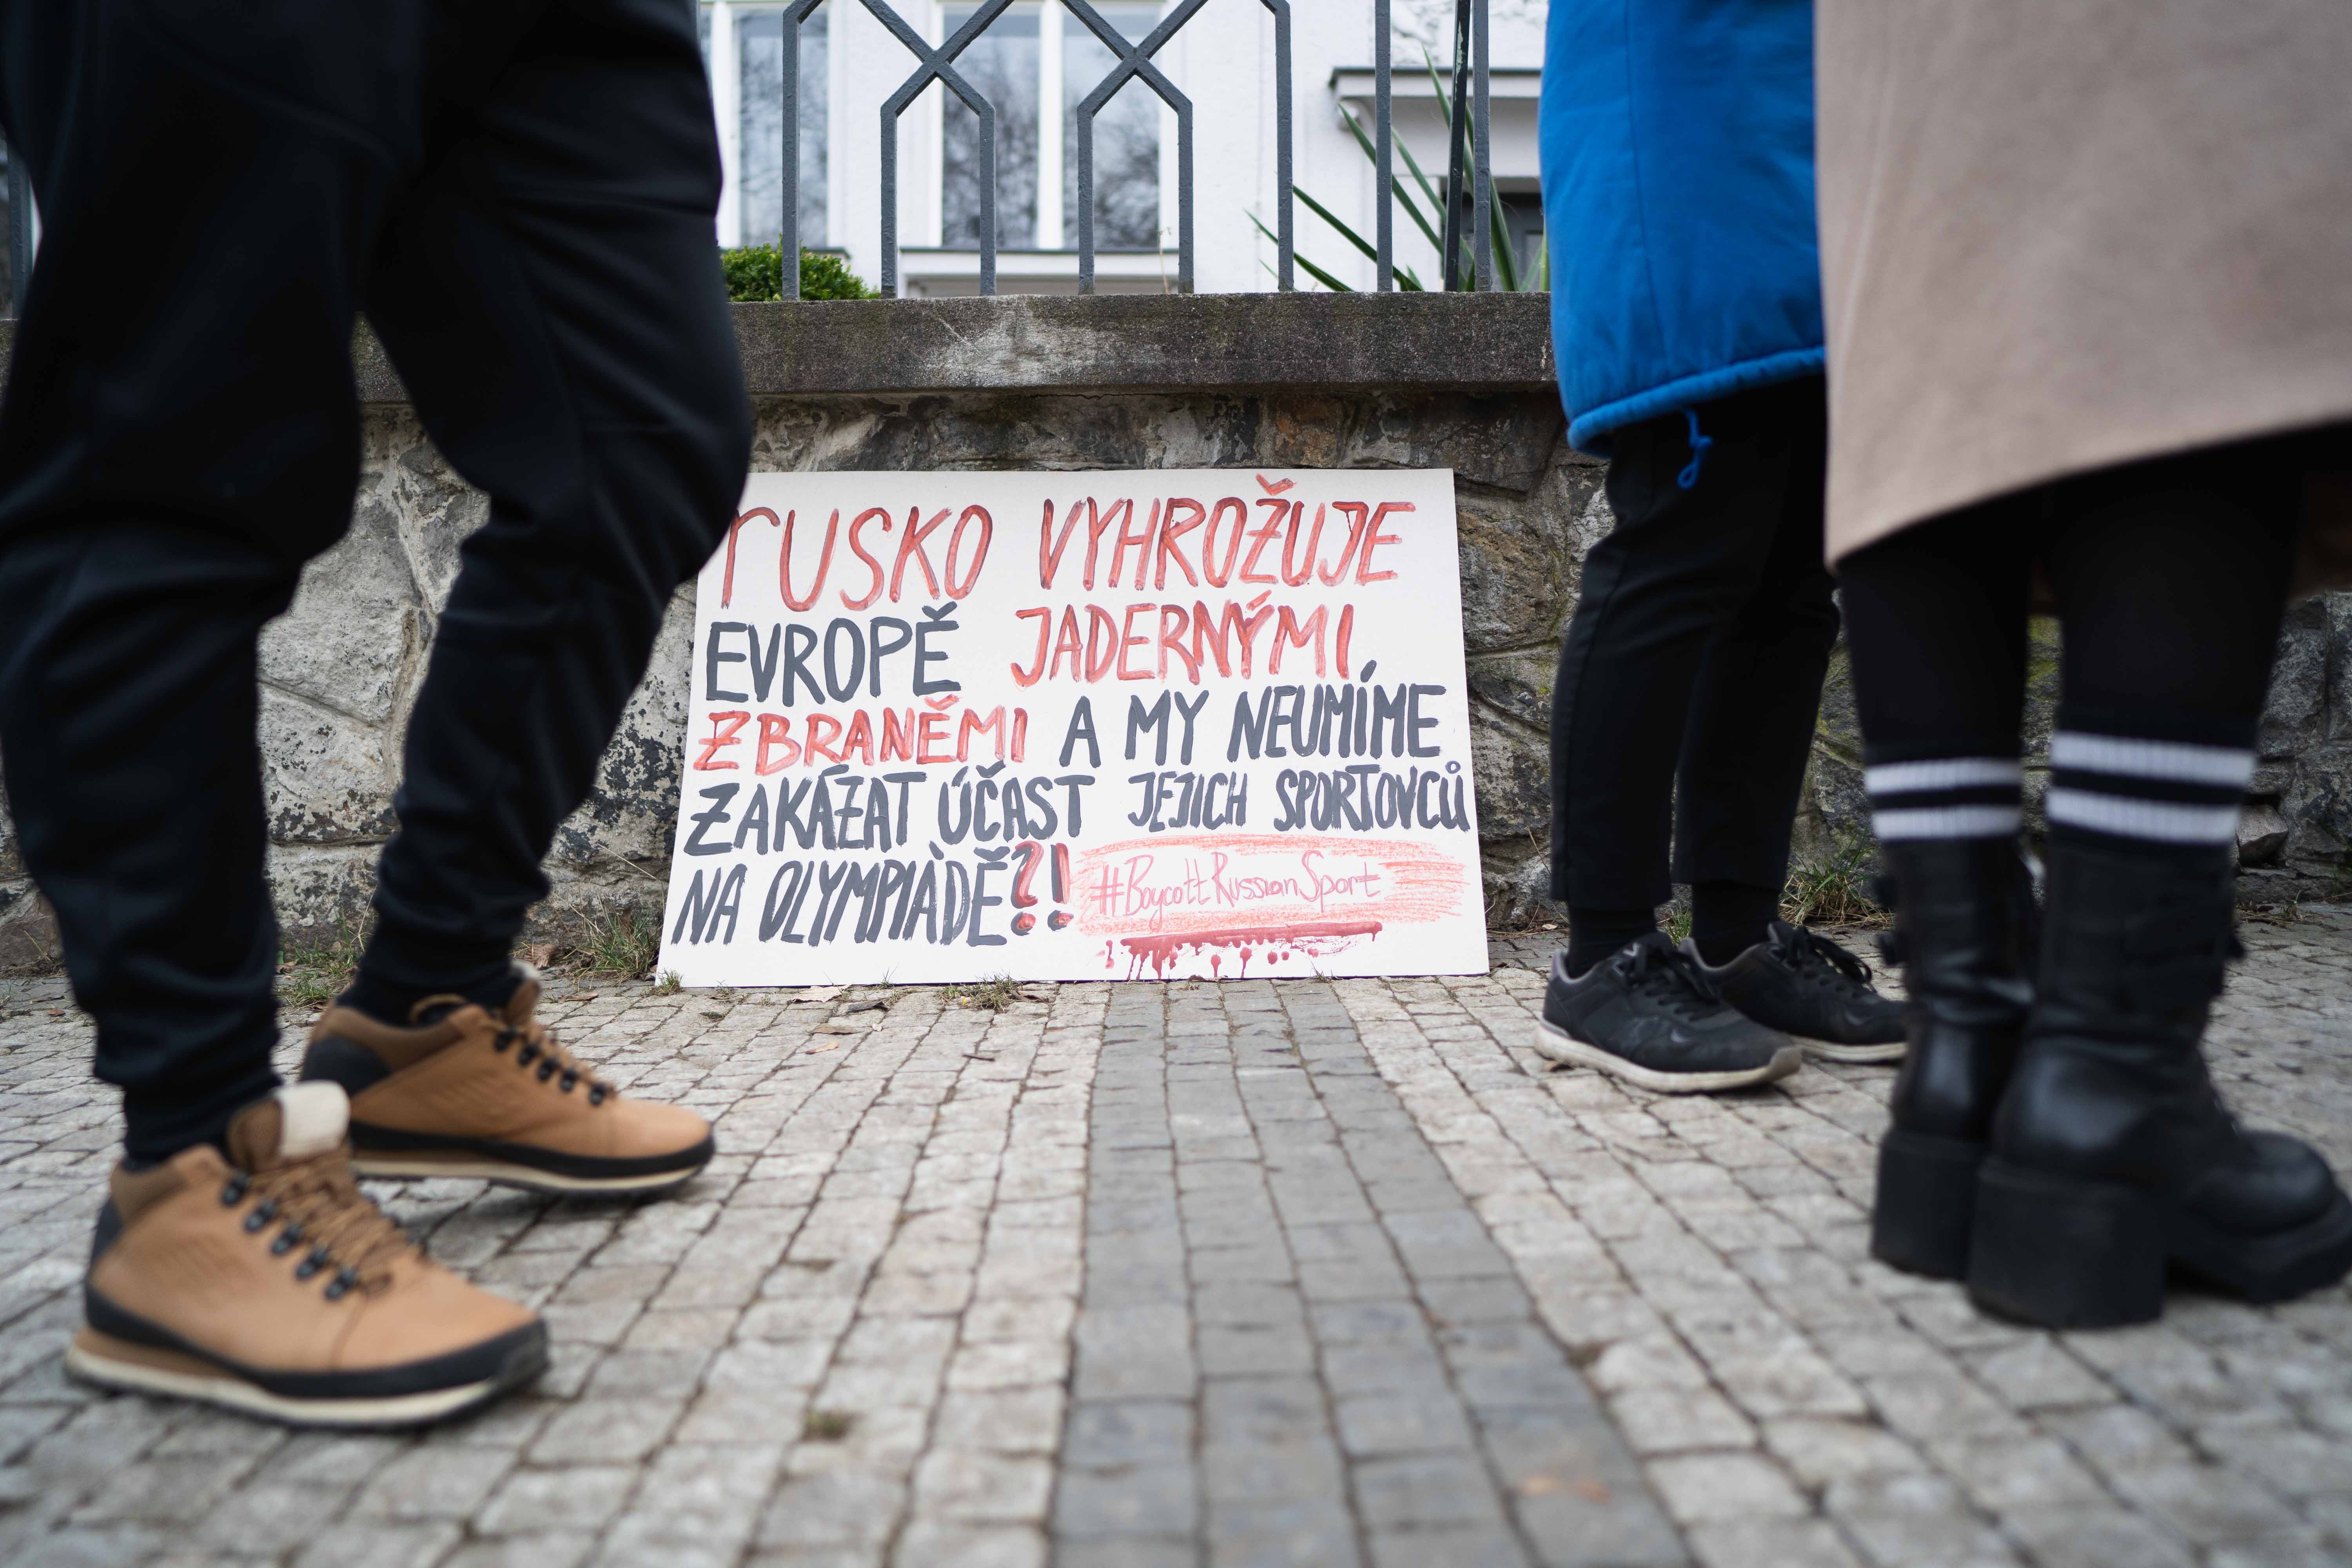 rUSKO VYHROŽUJE
EVROPĚ JADERNÝMI
ZBRANĚMI A MY NEUMÍME
ZAKÁZAT ÚČAST JEJICH SPORTOVCŮ
NA OLYMPIÁDĚ?!
#BoycottRussianSport